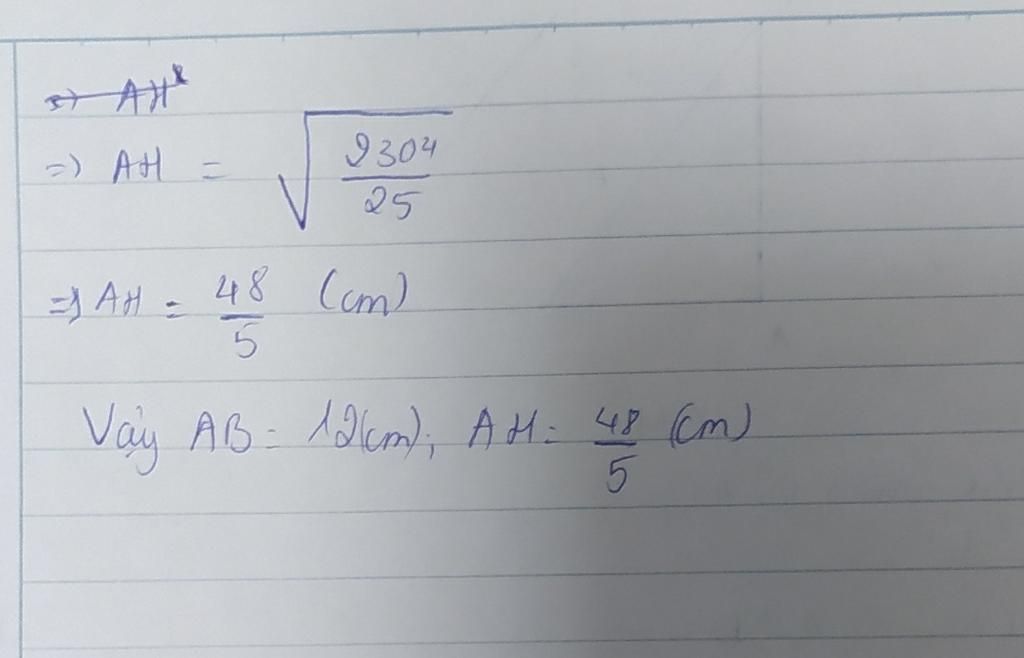 ⇒ AH²
⇒ AH = √(2304/25)
⇒ AH = 48/5 (cm)
Vậy AB = 12(cm); AH = 48/5 (cm)